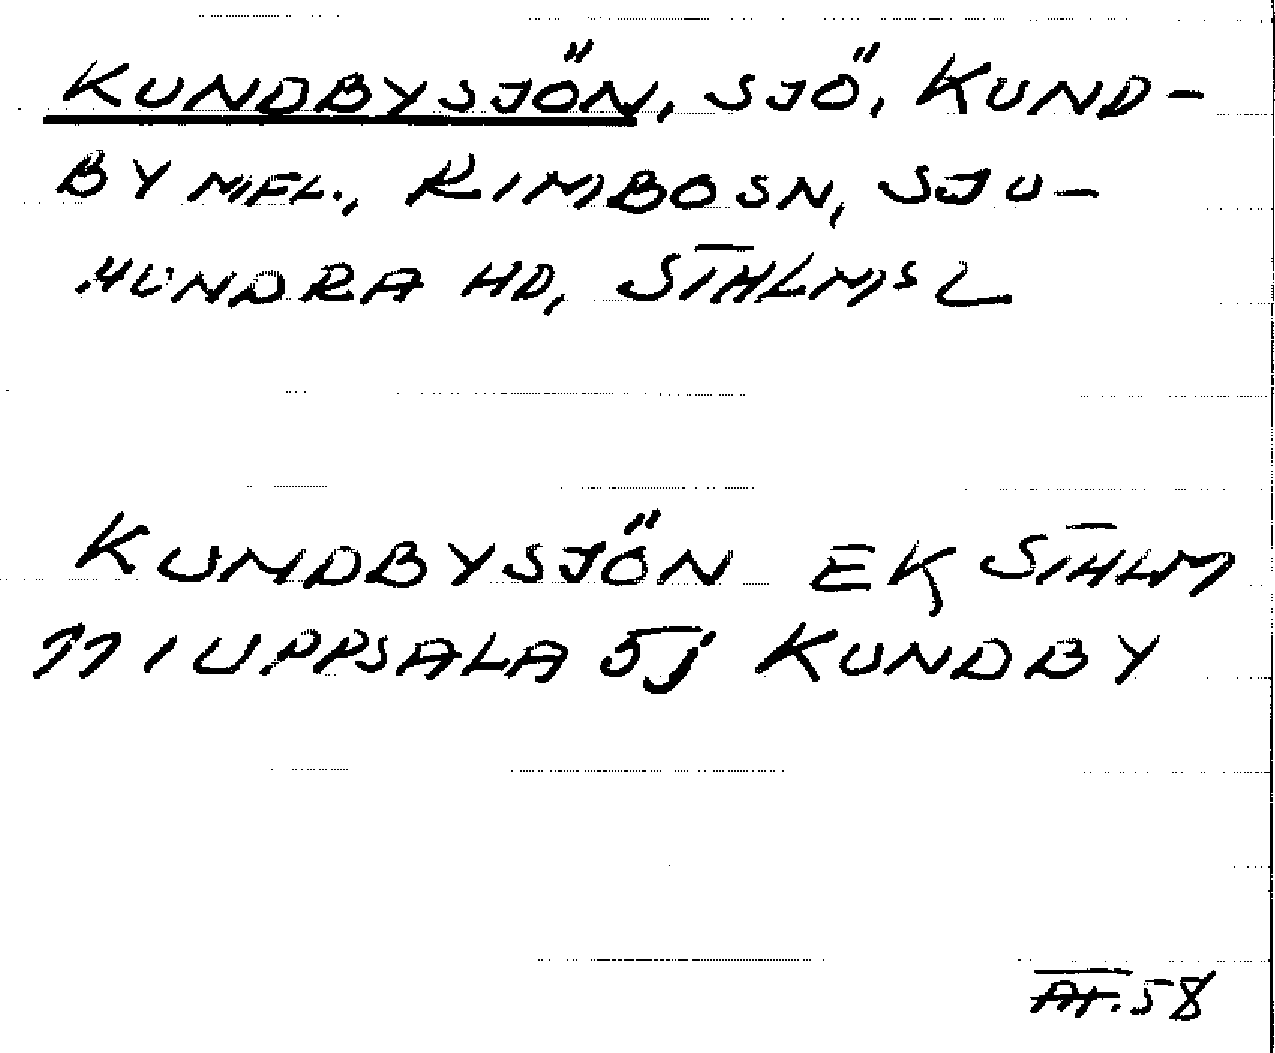 KUNDBYSJÖN, SJÖ, KUND-
BY MFL., RIMBO SN, SJU-
HUNDRA HD, STHLMS L
KUNDBYSJÖN EK STHLM
11 I UPPSALA 5j KUNDBY
AT. 58